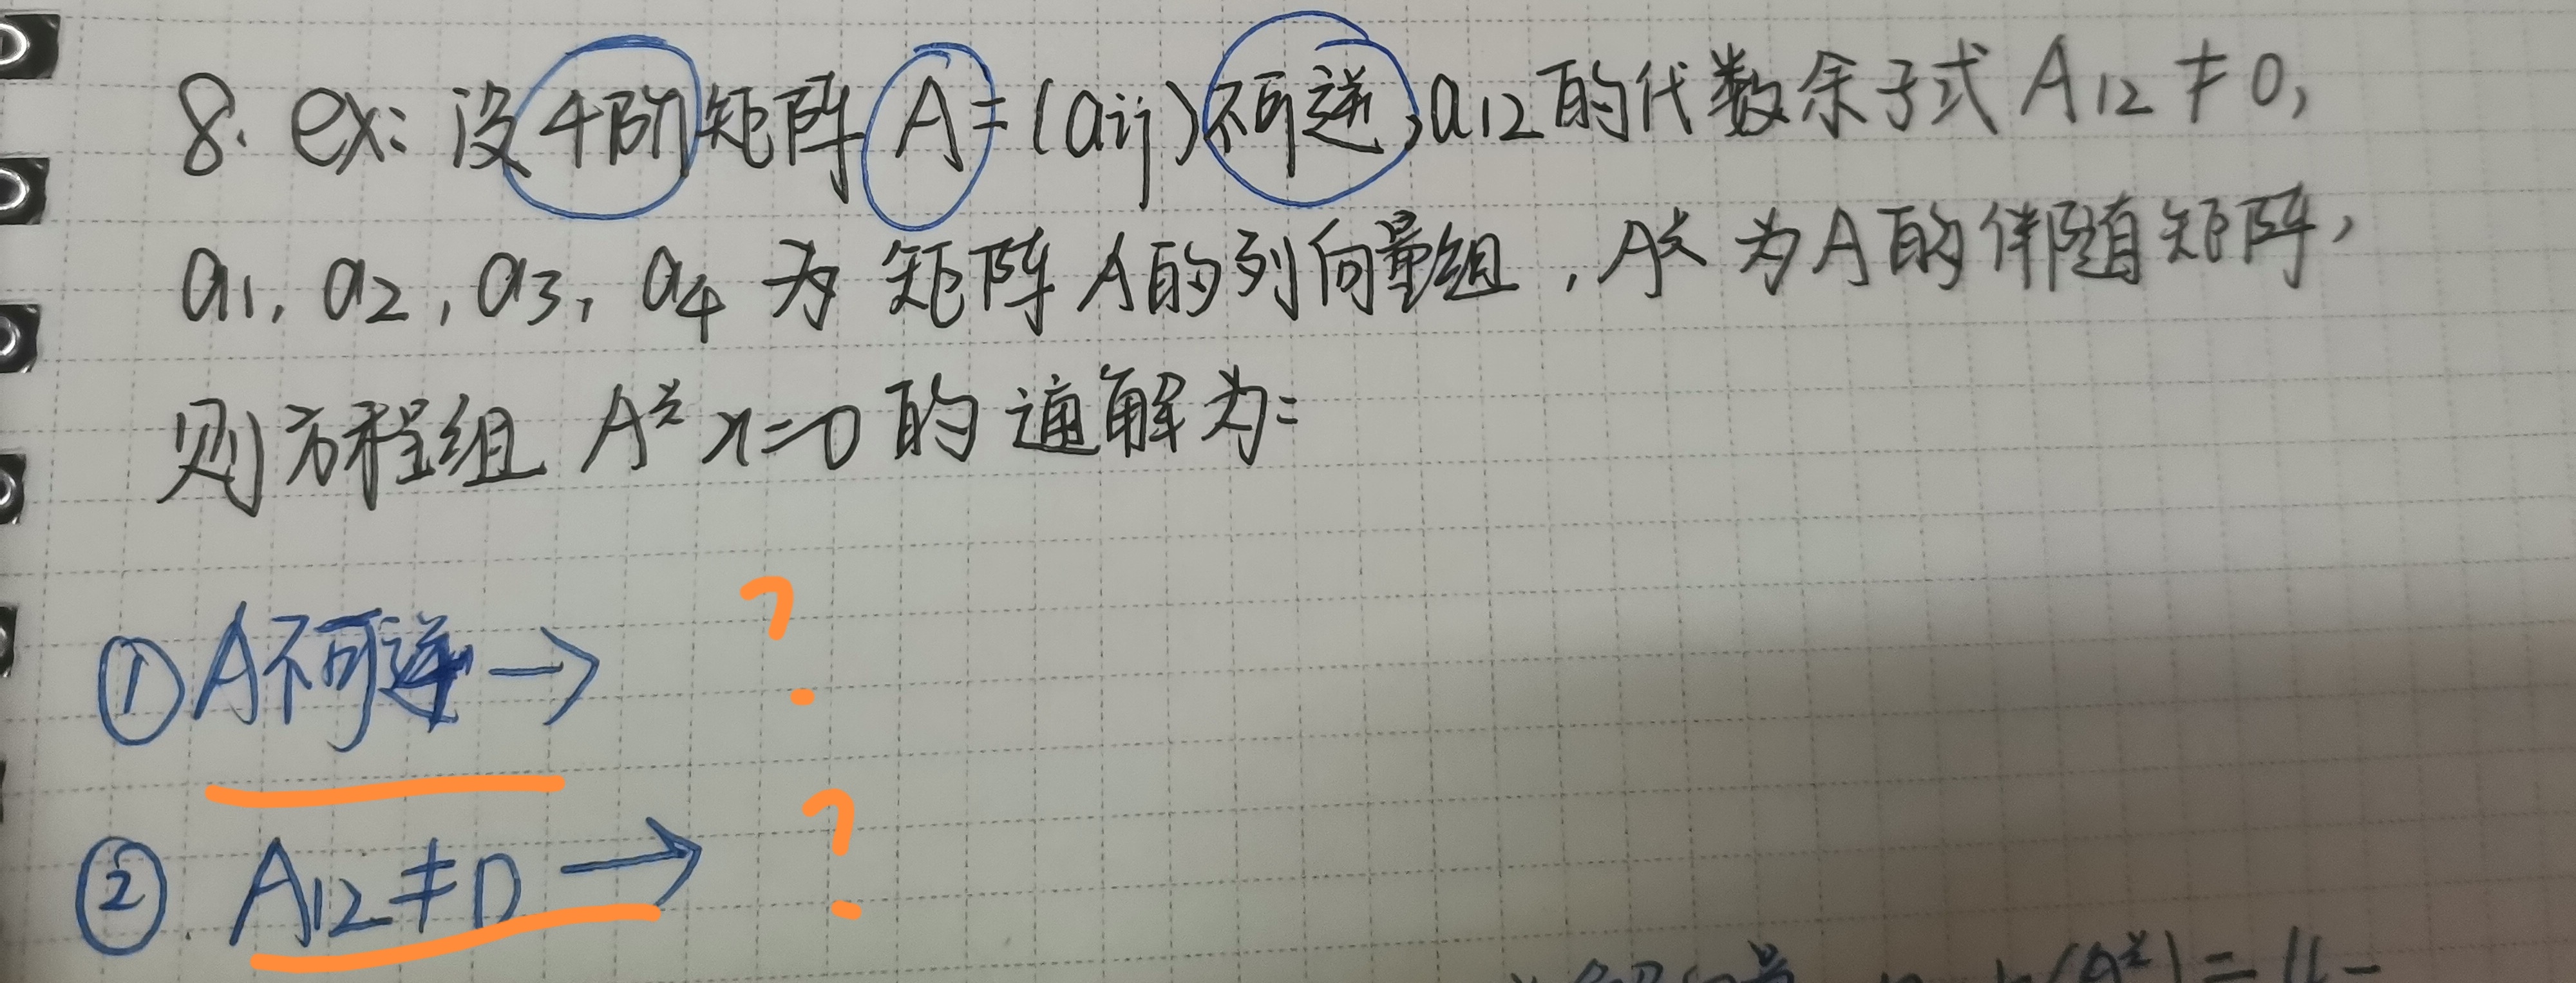 8. ex: 设4阶矩阵 A=(aij)不可逆,a12的代数余子式 A12≠0,
a1, a2, a3, a4 为 矩阵 A的列向量组, A* 为A的伴随矩阵,
则方程组 A*x=0 的通解为:
? 
① A不可逆→
?
② A12≠0→
(A*)=4-